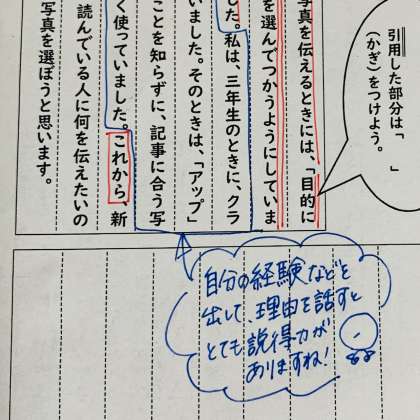 引用した部分は「　」
（かぎ）をつけよう。
写真を伝えるときには、「目的に
を選んでつかうようにしていま
した。私は、三年生のときに、クラ
いました。そのときは、「アップ」
ことを知らずに、記事に合う写
く使っていました。これから、新
読んでいる人に何を伝えたいの
写真を選ぼうと思います。
自分の経験などを
出して、理由を話すと
とても説得力が
ありますね！